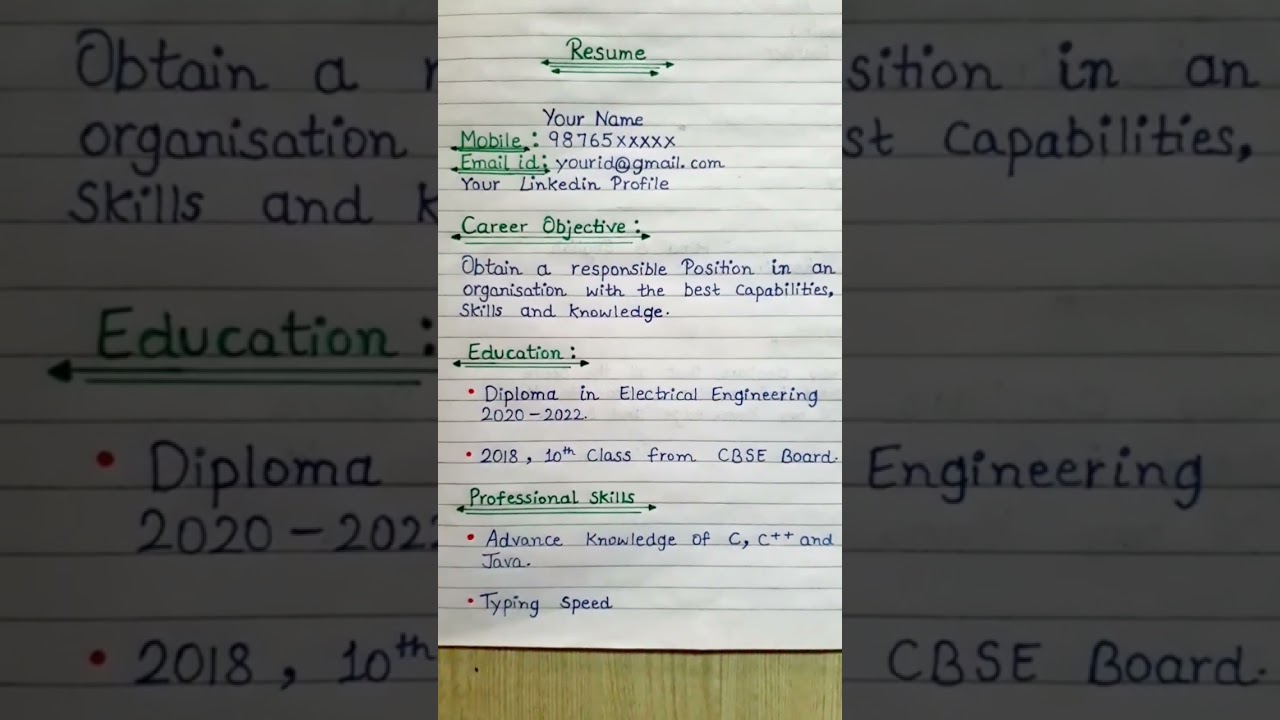 Resume
Your Name
Mobile : 98765xxxxx
Email id : yourid@gmail.com
Your Linkedin Profile
Career Objective :
Obtain a responsible Position in an
organisation with the best Capabilities,
Skills and Knowledge.
Education :
• Diploma in Electrical Engineering
2020-2022.
• 2018, 10th Class from CBSE Board.
Professional Skills
• Advance Knowledge of C, C++ and
Java.
• Typing Speed